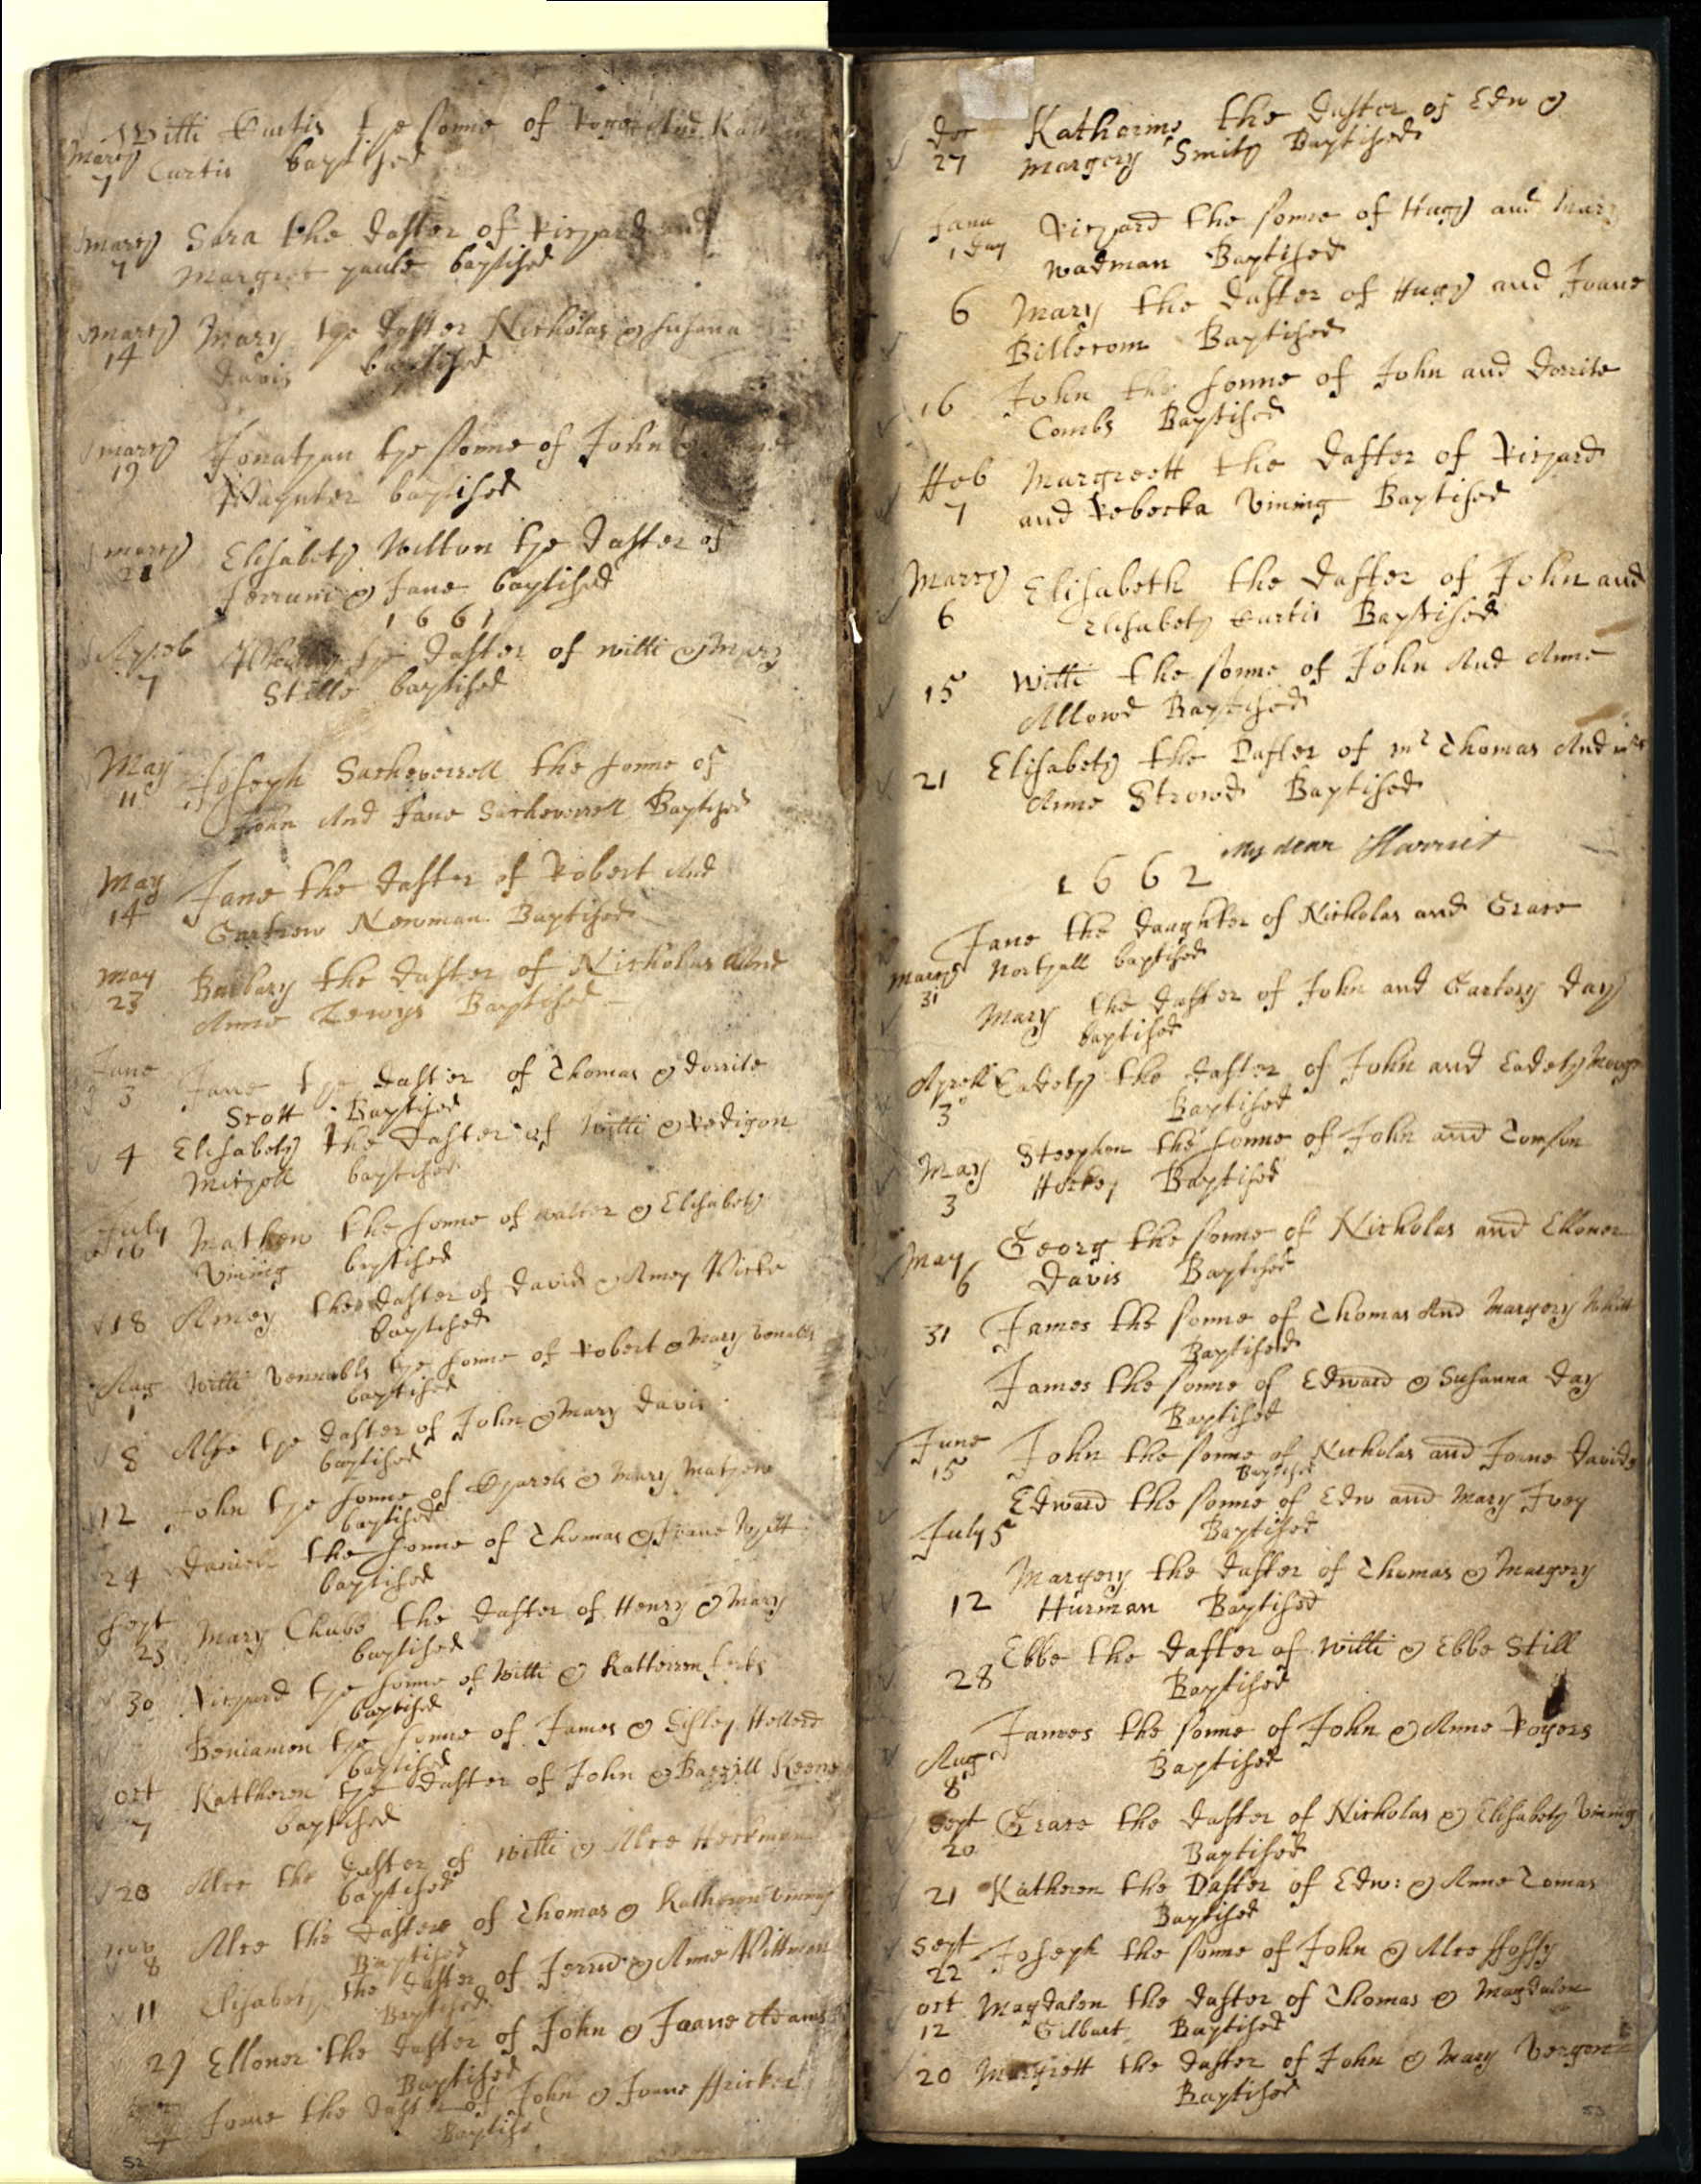 Willi Curtis the sonne of Roger and
March 7 Curtis baptised
March 7 Sara the dafter of Richard and
Margret paule baptised
March 14 Mary the dafter Nicholas & Susana
Davis baptised
March 19 Jonathan the sonne of John
Paynter baptised
March 21 Elisabeth Wilton the dafter of
& Jane baptised
1661
7 the dafter of Willi & Mary
Stille baptised
May 11 Joseph Sacheverell the sonne of
John And Jane Sacheverell Baptised
May 14 Jane the dafter of Robert And
Gartrew Newman Baptised
May 23 Barbary the dafter of Nicholas And
Anne Lewys Baptised
June 3 Jane the dafter of Thomas & dorrite
Scott Baptised
4 Elisabeth the dafter of Willi & Redigon
Mitchell baptised
July 16 Mathew the sonne of Walter & Elisabeth
Vining baptised
18 Amey the dafter of David & Amey
baptised
Aug 1 Willi Vennables the sonne of Robert & Mary Venables
baptised
8 Alse the dafter of John & Mary Davis
baptised
12 John the sonne of Charels & Mary Mathew
baptised
24 Daniell the sonne of Thomas & Joane
baptised
Sept 23 Mary Chubb the dafter of Henry & Mary
baptised
30 Richard the sonne of Willi & Katteren
baptised
Beniamen the sonne of James & Hellerd
baptised
Oct 7 Katheren the dafter of John & Keene
baptised
20 Alce the dafter of Willi & Alce Heckman
baptised
Nov 8 Alce the daftere of Thomas & Katheren Vining
Baptised
11 Elisabeth the dafter of & Anne Pittman
Baptised
27 Elloner the dafter of John & Joane Adams
Baptised
Jone the dafter of John & Joane ffricker
Baptise
Dec 27 Katherine the dafter of Edw &
Margery Smith Baptised
Janu 1 day Richard the sonne of Hugh and Mary
Wadman Baptised
6 Mary the dafter of Hugh and Joane
Billerom Baptised
16 John the sonne of John and Dorrite
Combs Baptised
ffeb 7 Margreett the dafter of Richard
and Rebecka Vining Baptised
March 6 Elisabeth the dafter of John and
Elisabeth Curtis Baptised
15 Willi the sonne of John And Anne
Allowd Baptised
21 Elisabeth the Dafter of mr Thomas And mrs
Anne Strowd Baptised
My dear Harriet
1662
Jane the daughter of Nicholas and Grace
March 31 Northall baptised
Mary the dafter of John and Gartery Day
baptised
Aprell 3 the dafter of John and
Baptised
May 3 Steephen the sonne of John and Tomsen
Baptised
May 6 Georg the sonne of Nicholas and Elloner
Davis Baptised
31 James the sonne of Thomas And Margery Whitt
Baptised
James the sonne of Edward & Susanna Day
Baptised
June 15 John the sonne of Nicholas and Joane Davids
Baptised
Edward the sonne of Edw and Mary Ivey
July 5 Baptised
Margery the dafter of Thomas & Margery
12 Hurman Baptised
Ebbe the dafter of Willi & Ebbe Still
28 Baptised
James the sonne of John & Anne Rogers
Aug 8 Baptised
Sept 20 Grace the dafter of Nicholas & Elisabeth Vining
Baptised
21 Katheren the Dafter of Edw: & Anne Tomas
Baptised
Sept 22 Joseph the sonne of John & Alce
Oct 12 Magdalen the dafter of Thomas & Magdalen
Gilbert Baptised
20 Margrett the dafter of John & Mary
Baptised
52
53